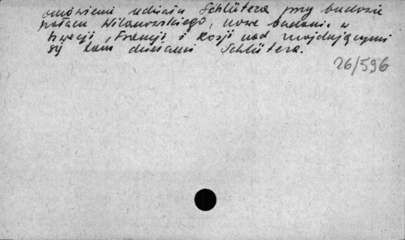 omówieni udziału Schlütera przy budowie
pałacu Wilanowskiego, nowe badania w
Szwecji, Francji i Rosji nad znajdującymi
się tam dziełami Schlütera.
26/596